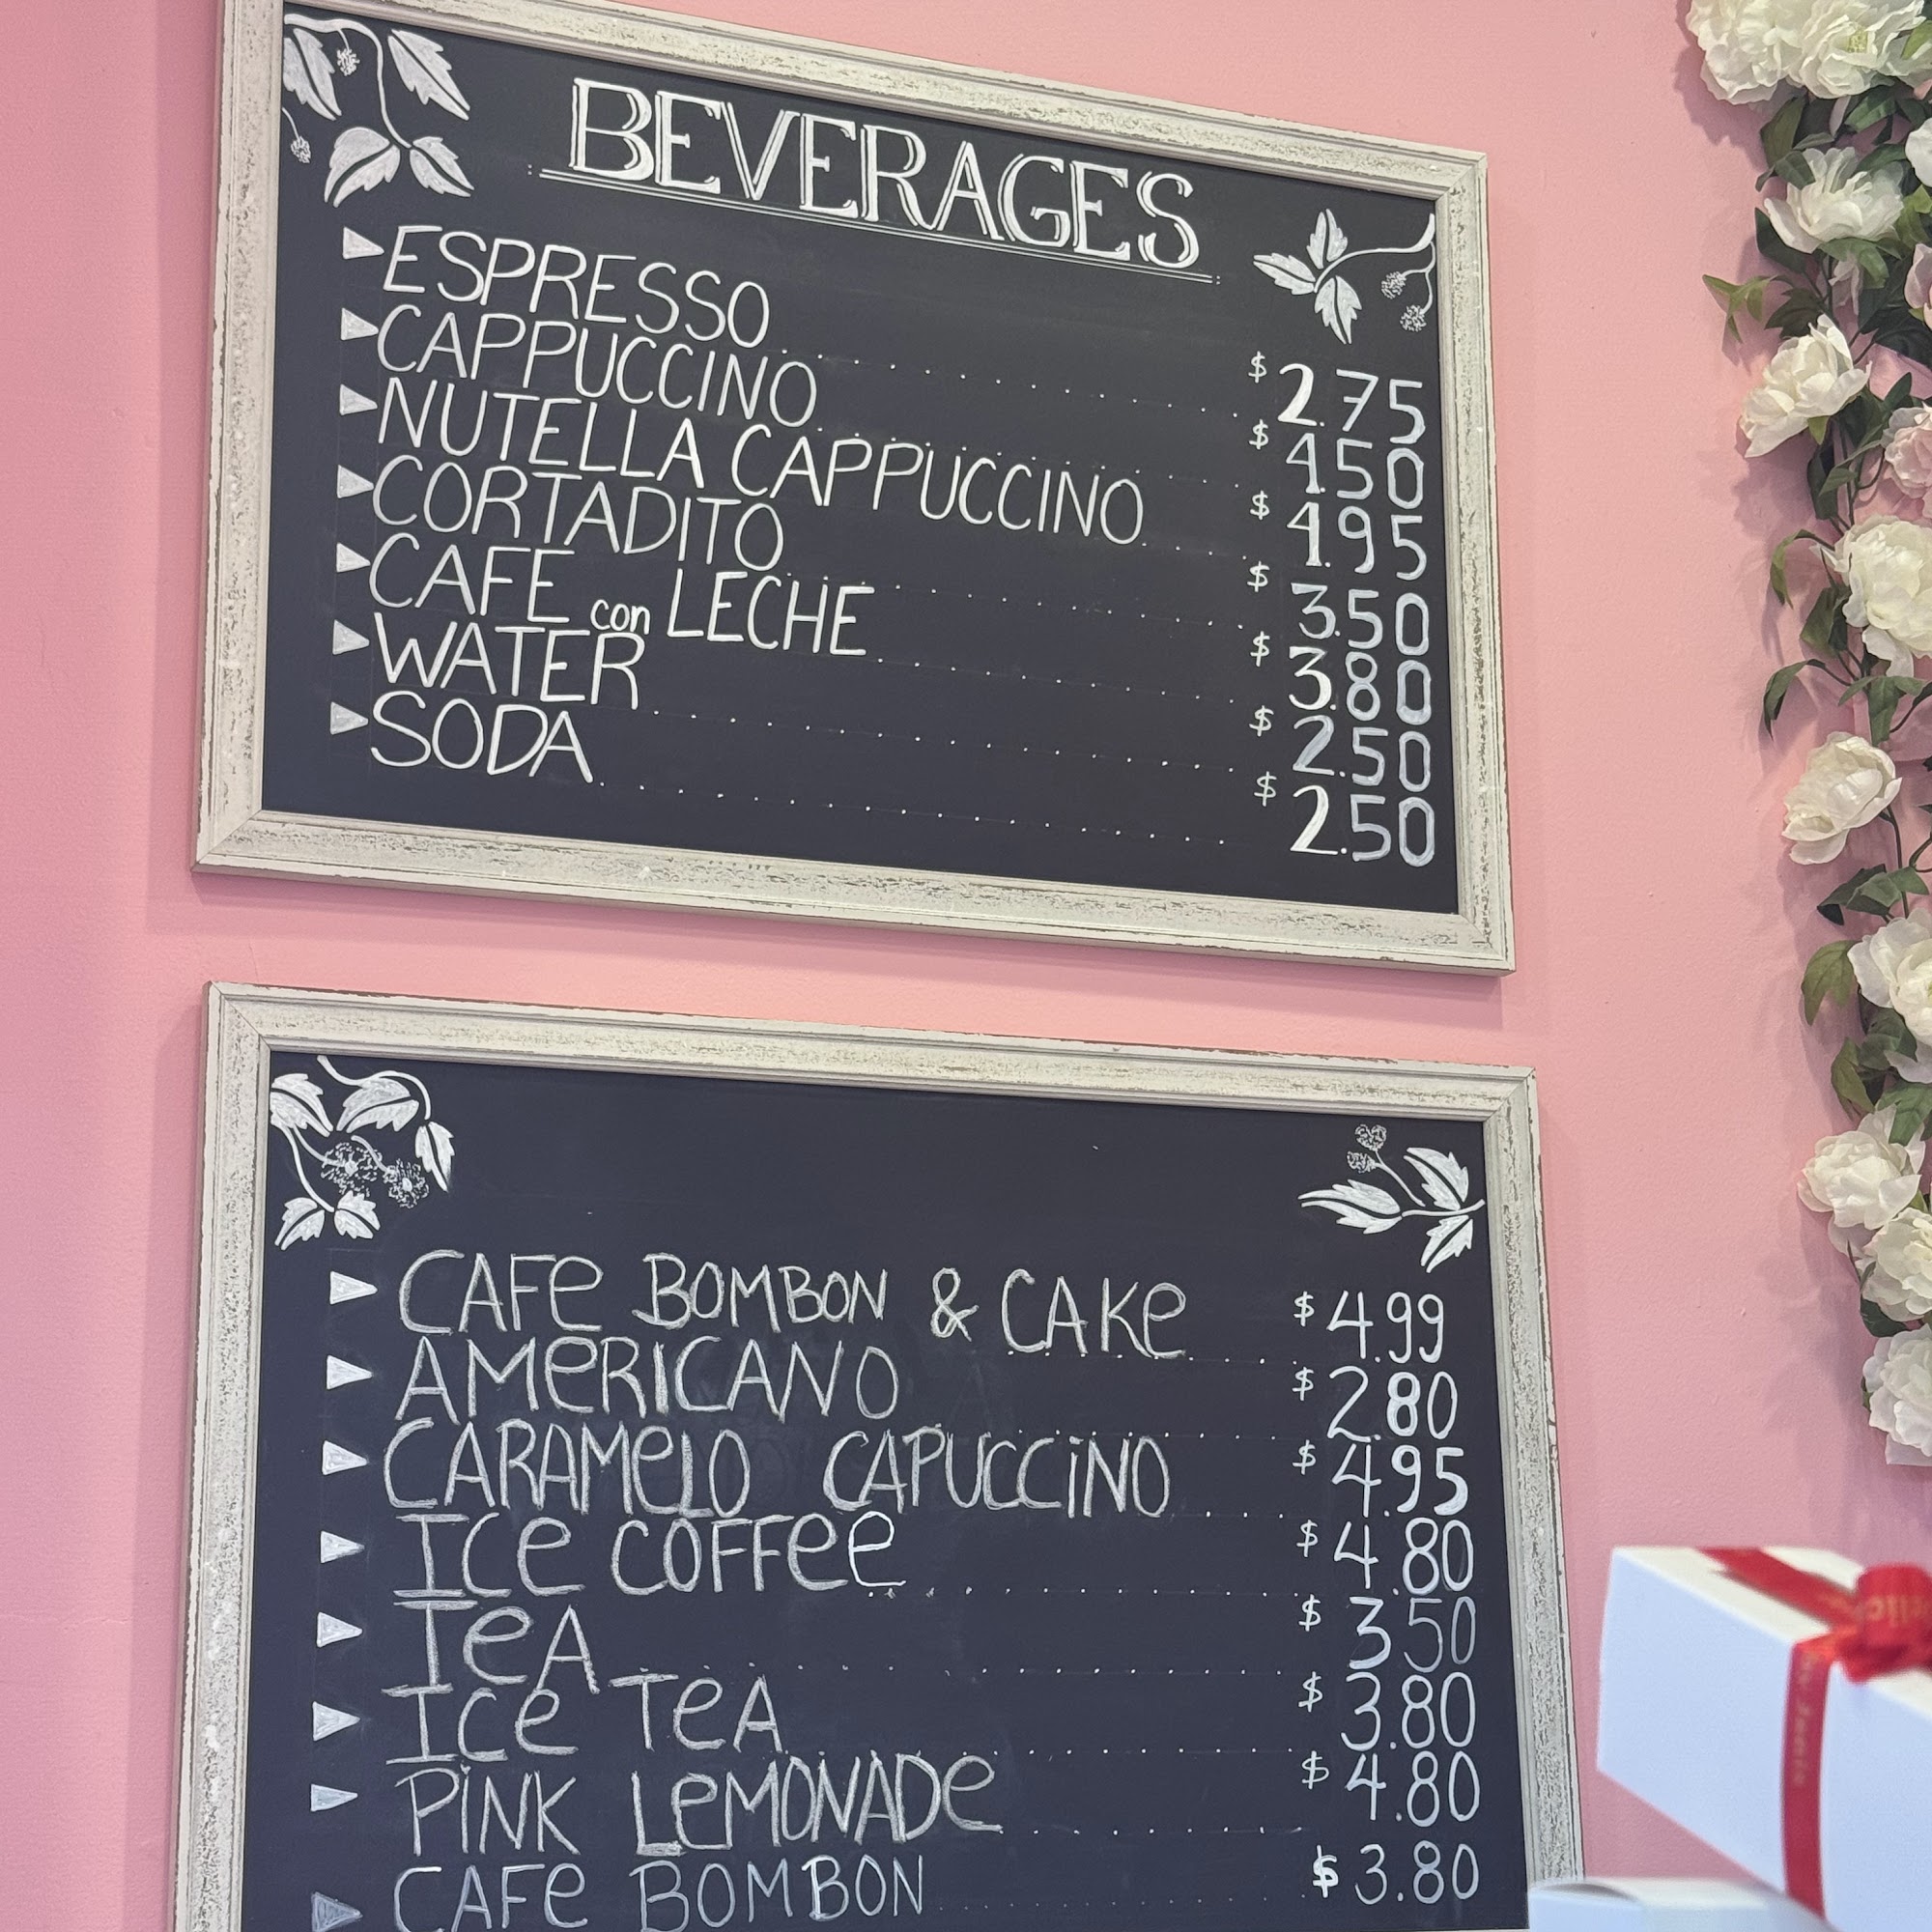 BEVERAGES
ESPRESSO $2.75
CAPPUCCINO $4.50
NUTELLA CAPPUCCINO $4.95
CORTADITO $3.50
CAFE con LECHE $3.80
WATER $2.50
SODA $2.50
CAFe BOMBON & CAKe $4.99
AMeRICANO $2.80
CARAMeLO CAPUCCiNO $4.95
ICe COFFee $4.80
TeA $3.50
ICe TeA $3.80
PiNK LeMONADe $4.80
CAFe BOMBON $3.80